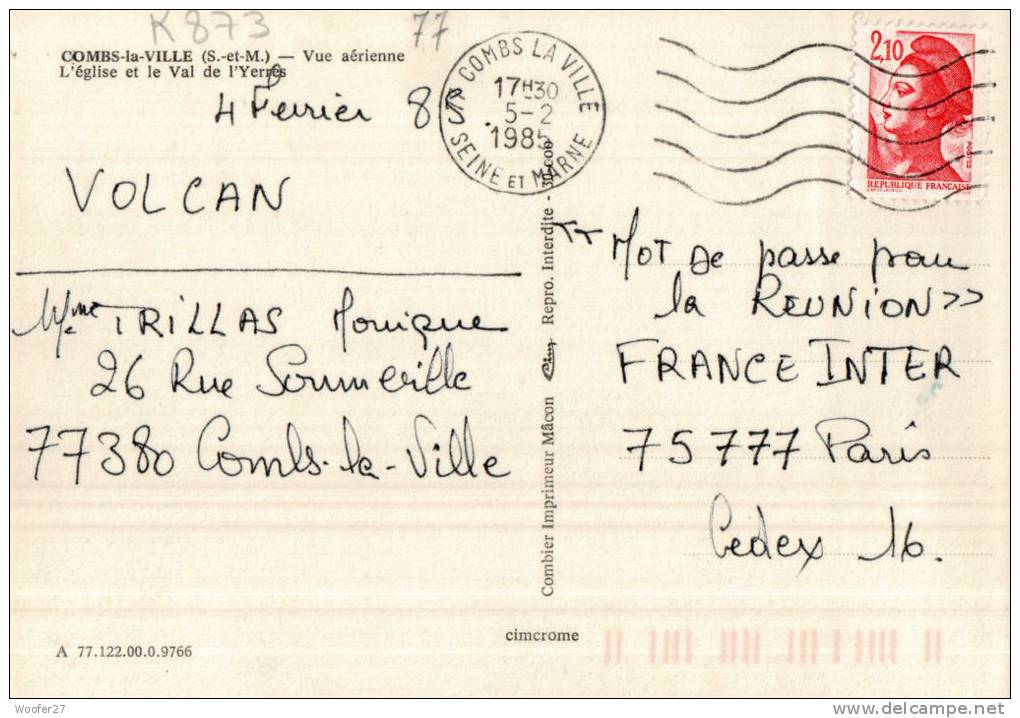 K873
77
COMBS-la-VILLE (S.-et-M.) — Vue aérienne
L'église et le Val de l'Yerres
4 Février 85
COMBS LA VILLE
17H30
5-2
1985
SEINE ET MARNE
2,10
POSTES
REPUBLIQUE FRANÇAISE
VOLCAN
Mme TRILLAS Monique
26 Rue Sommeville
77380 Combs-la-Ville
Combier Imprimeur Mâcon Cim Repro. Interdite -
"Mot de passe pour
la REUNION>>
FRANCE INTER
75777 Paris
Cedex 16.
cimcrome
A 77.122.00.0.9766
Woofer27
delcampe.net